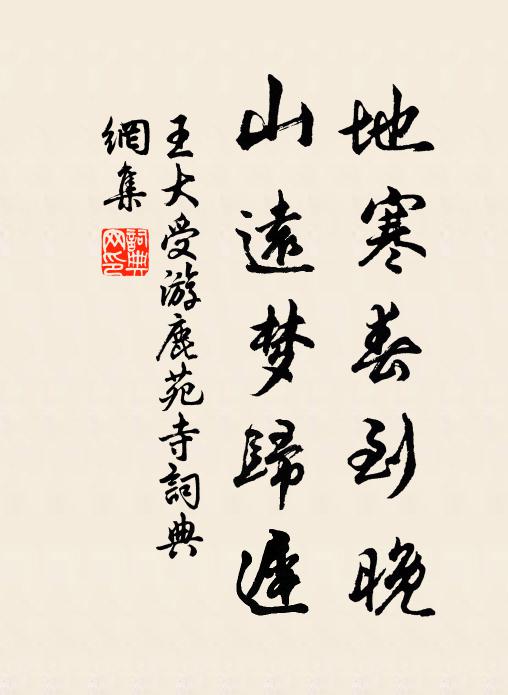 地寒春到晚
山遠梦歸遲
王大受游鹿苑寺詞典
網集
詞典網印